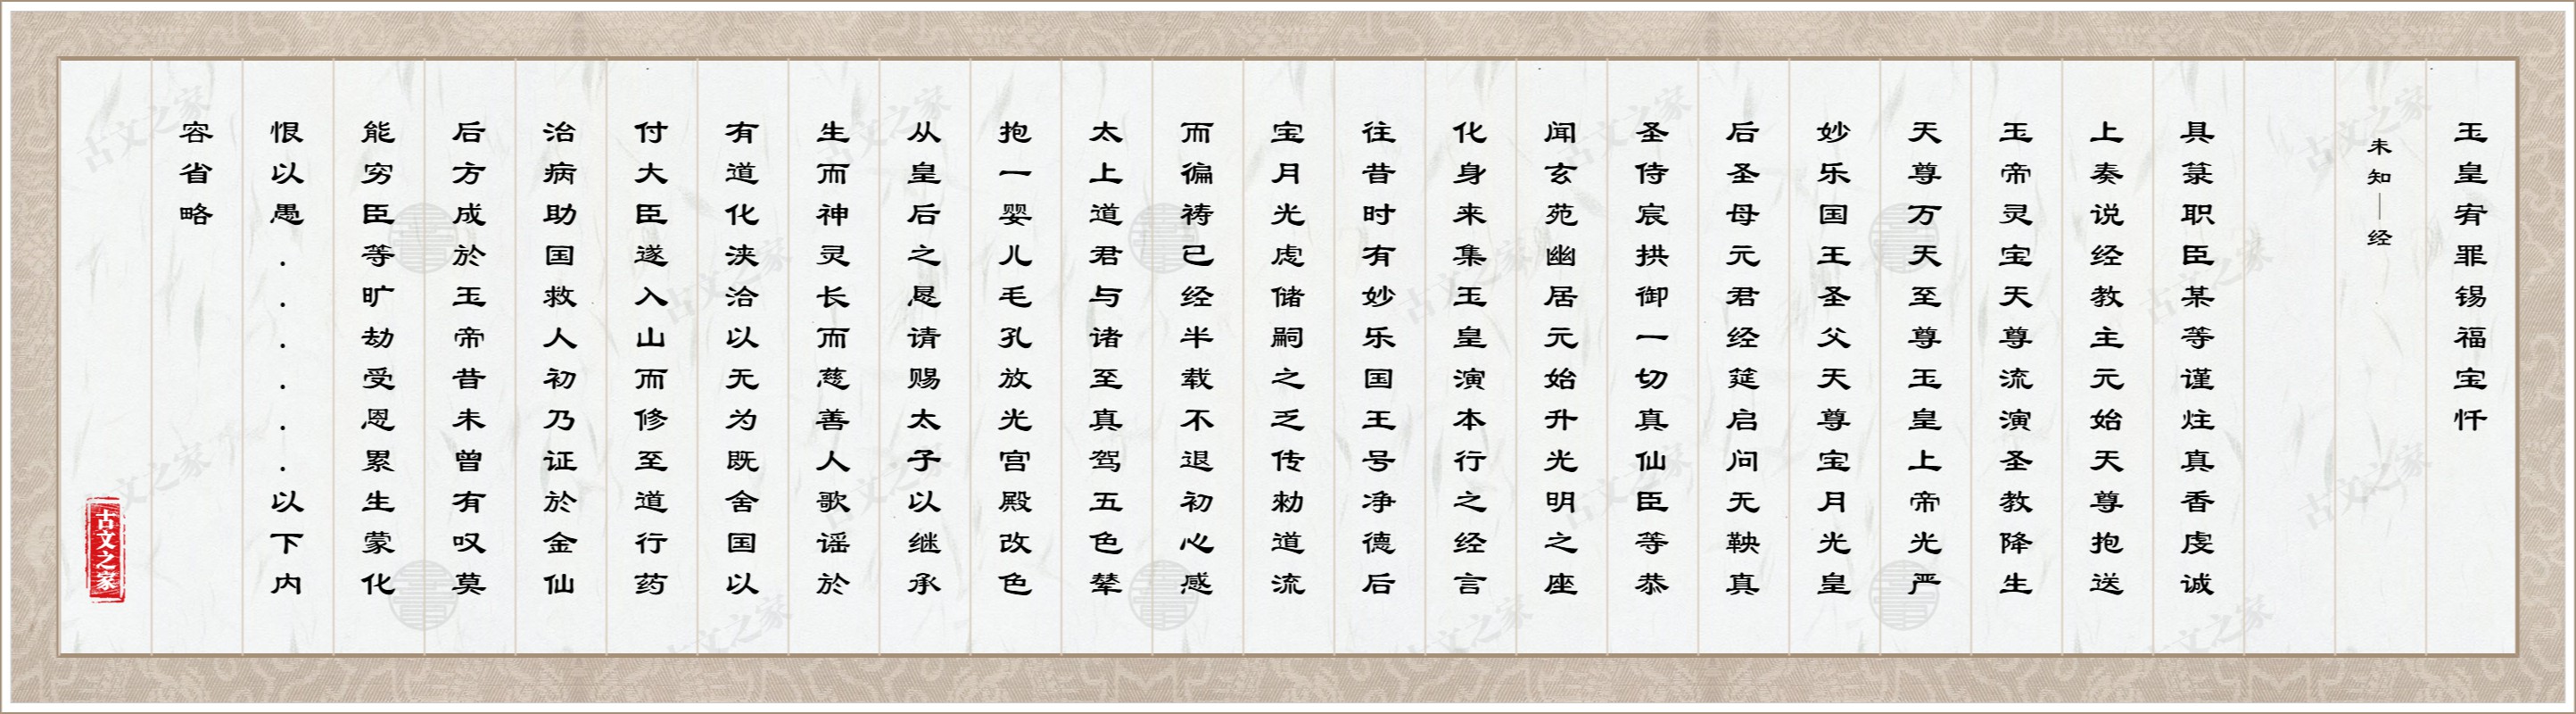 玉皇宥罪锡福宝忏
未知｜经
具箓职臣某等谨炷真香虔诚
上奏说经教主元始天尊抱送
玉帝灵宝天尊流演圣教降生
天尊万天天至尊玉皇上帝光严
妙乐国王圣父天尊宝月光皇
后圣母元君经筵启问无鞅真
圣侍宸拱御一切真仙臣等恭
闻玄苑幽居元始升光明之座
化身来集玉皇演本行之经言
往昔时有妙乐国王号净德后
宝月光虑储嗣之乏传勑道流
而徧祷已经半载不退初心感
太上道君与诸至真驾五色辇
抱一婴儿毛孔放光宫殿改色
从皇后之恳请赐太子以继承
生而神灵长而慈善人歌谣於
有道化浃洽以无为既舍国以
付大臣遂入山而修至道行药
治病助国救人初乃证於金仙
后方成於玉帝昔未曾有叹莫
能穷臣等旷劫受恩累生蒙化
恨以愚......以下内
容省略
古文之家